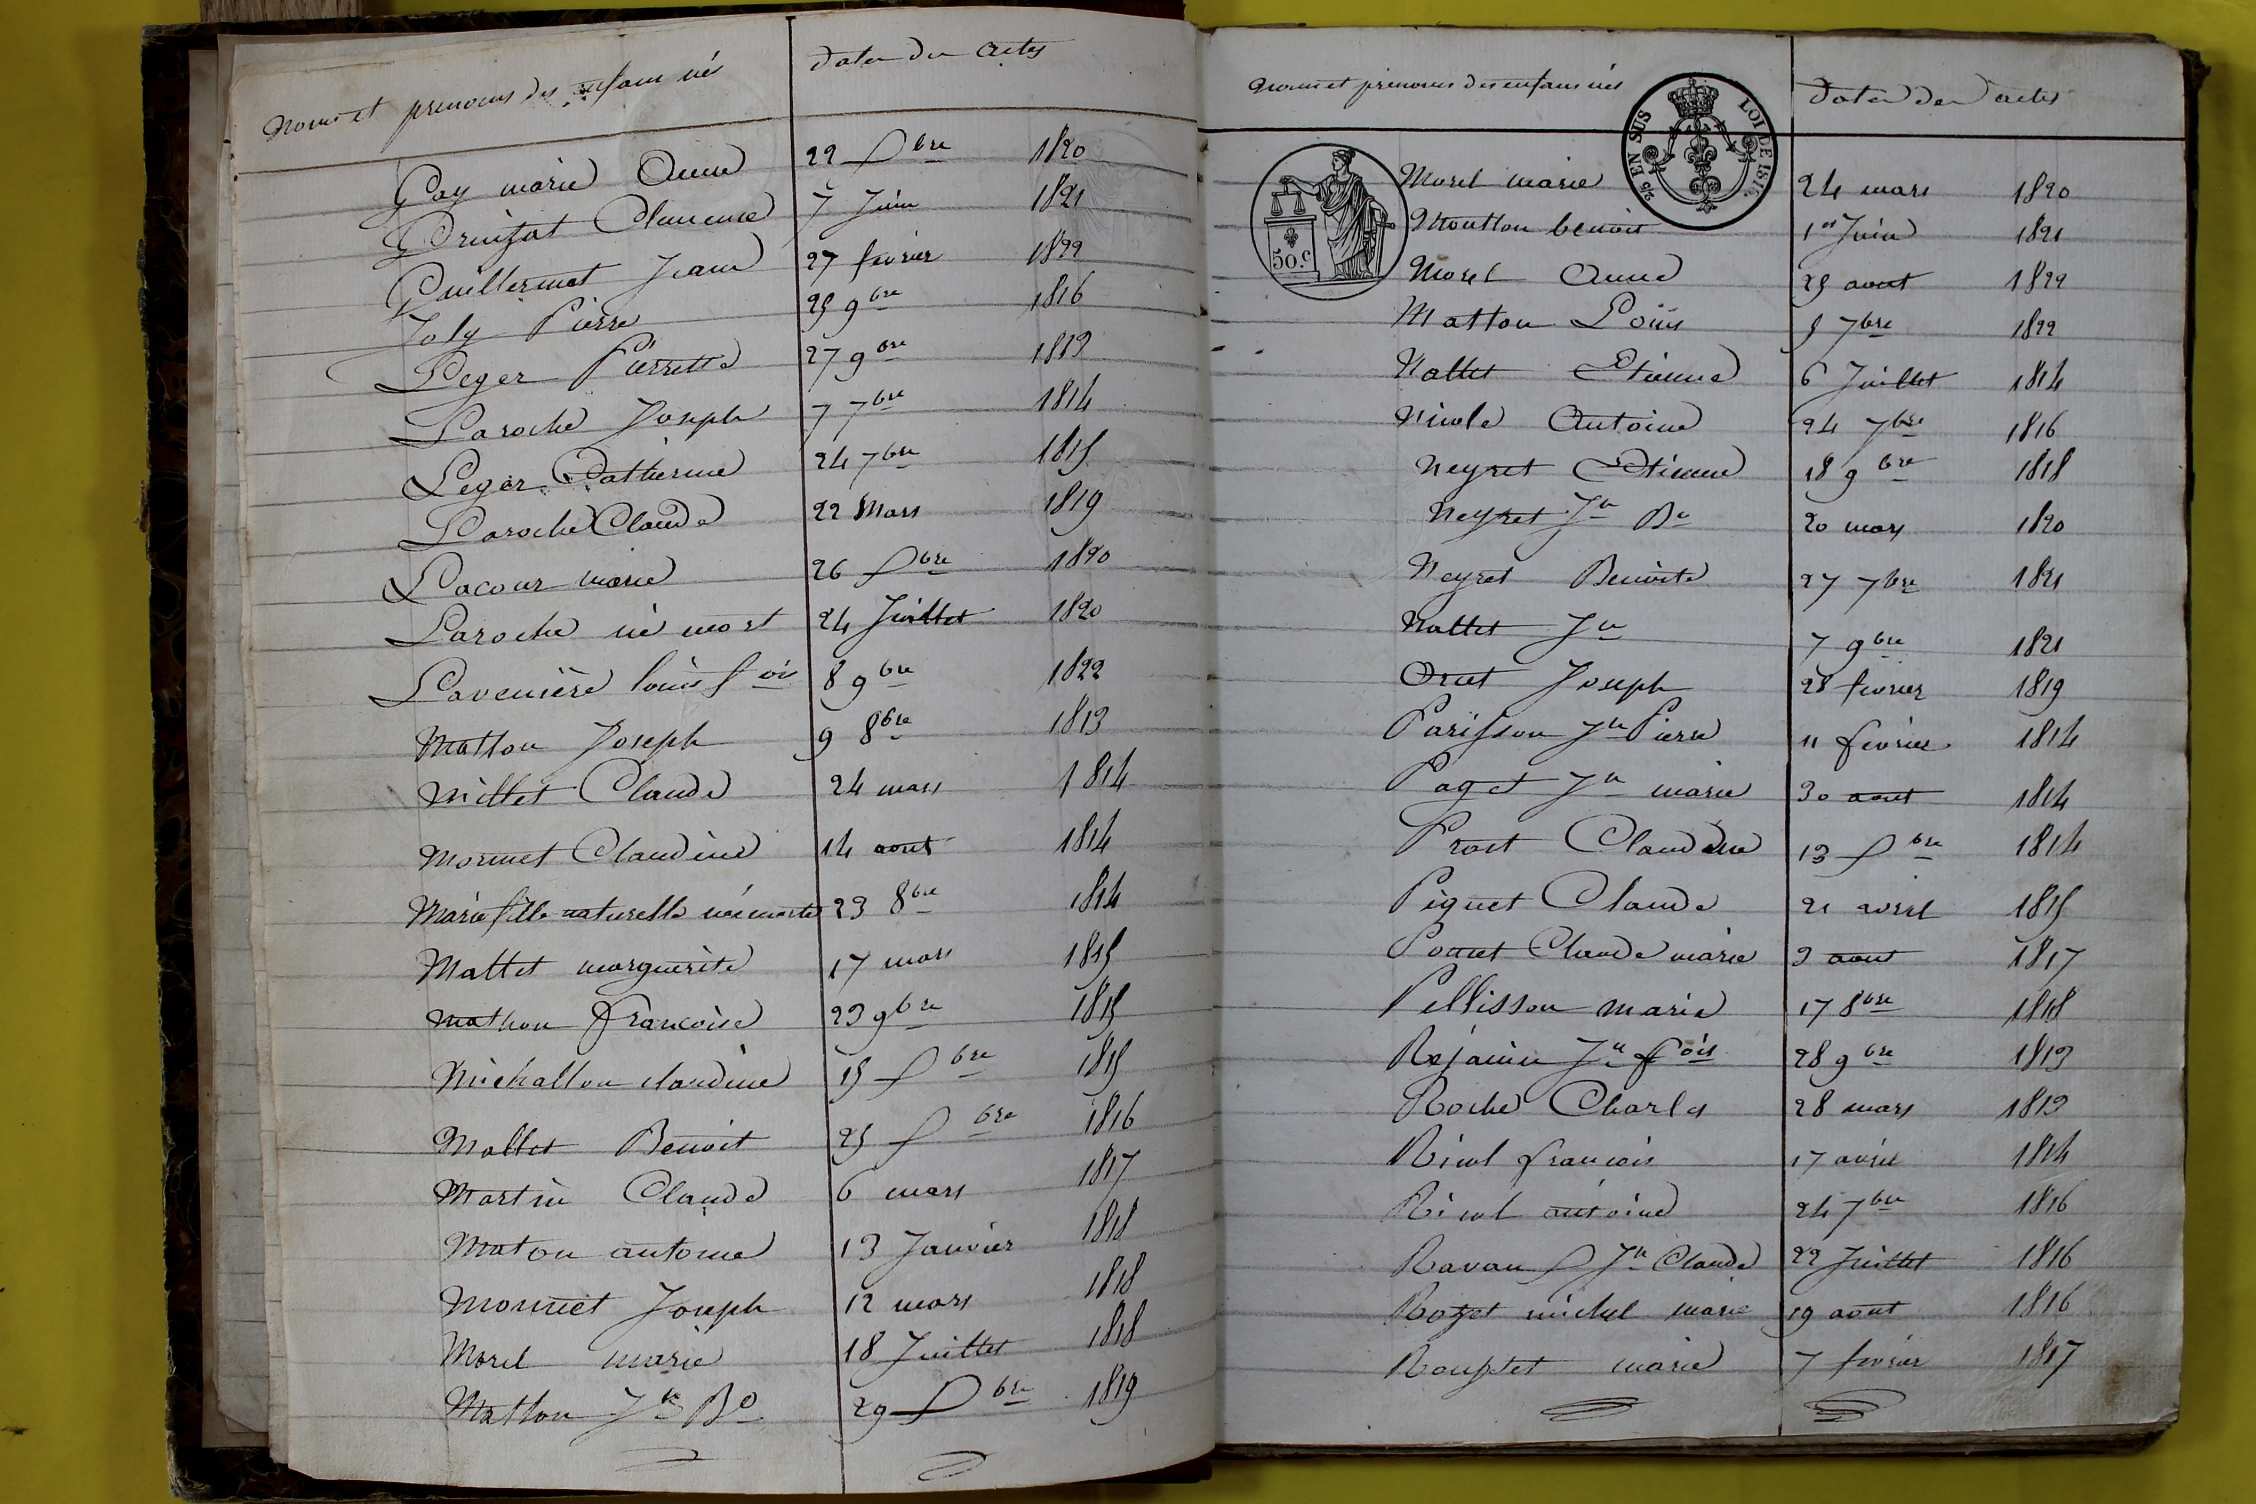 Noms et prenoms des enfans nés Dates des Actes
Gay marie Anne 22 Xbre 1820
7 Juin 1821
Guillermet Jean 27 fevrier 1822
Joly Pierre 25 9bre 1816
Leger Pierrette 27 9bre 1813
Laroche Joseph 7 7bre 1814
Leger Catherine 24 7bre 1815
Laroche Claude 22 Mars 1819
Lacour marie 26 Xbre 1820
Laroche né mort 24 Juillet 1820
Lavenière louis fois 8 9bre 1822
Mathon Joseph 9 8bre 1813
Millet Claude 24 mars 1814
Monnet Claudine 14 aout 1814
Marie fille naturelle née morte 23 8bre 1814
Mallet marguerite 17 mars 1815
mathon françoise 23 9bre 1815
Michallon claudine 15 Xbre 1815
Mallet Benoit 25 Xbre 1816
Martin Claude 6 mars 1817
Maton antoine 13 Janvier 1818
Monnet Joseph 12 mars 1818
Morel marie 18 Juillet 1818
Mathon Jn Be 29 Xbre 1819
Noms et prenoms des enfans nés Dates des actes
25 EN SUS LOI DE
50.c
Morel marie 24 mars 1820
Moutton benoit 1er Juin 1821
Morel Anne 25 aout 1822
Matton Louis 5 7bre 1822
Nallet Etienne 6 Juillet 1814
Nicole Antoine 24 7bre 1816
Neyret Etienne 18 9bre 1818
Neyret Jn Be 20 mars 1820
Neyret Benoite 27 7bre 1821
Nallet Jn 7 9bre 1821
Joseph 28 fevrier 1819
Parisson Jn Pierre 11 fevrier 1814
Paget Jn marie 30 aout 1814
Prost Claudine 13 Xbre 1814
Piquet Claude 21 avril 1815
Ponet Claude marie 3 aout 1817
Pellisson marie 17 8bre 1818
Rejanin Jn fois 28 9bre 1813
Roche Charles 28 mars 1813
Nicol françois 17 avril 1814
Nicol antoine 24 7bre 1816
Jn Claude 22 Juillet 1816
Rozet michel marie 19 aout 1816
marie 7 fevrier 1817